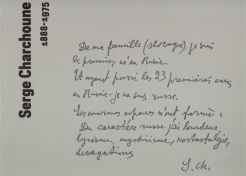 Serge Charchoune
1888-1975
De ma famille (slovaque), je suis
le premier, né en Russie.
Et ayant passé les 23 premières années
en Russie - je me suis russe.
Les énormes espaces m'ont formé.
Du caractère russe j'ai lourdeur,
lyrisme, mysticisme, nostalgie,
divagations
S. Ch.